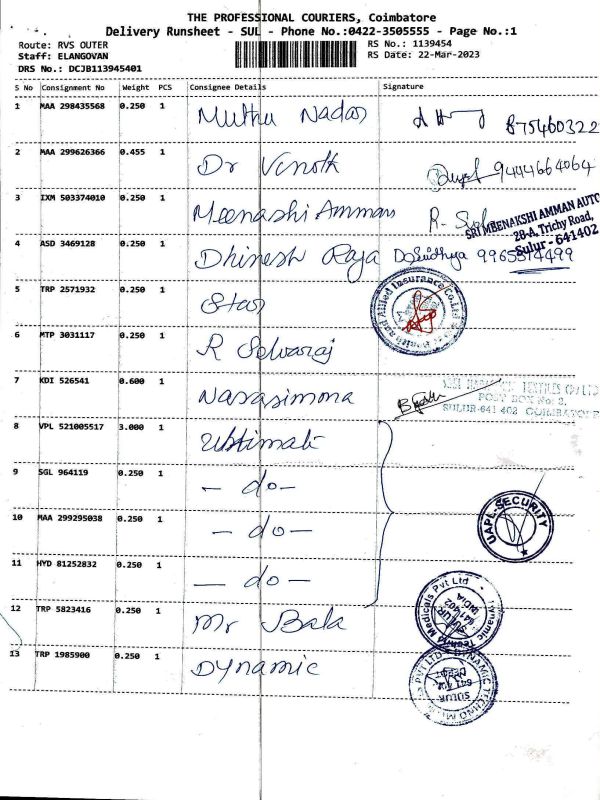 THE PROFESSIONAL COURIERS, Coimbatore
Delivery Runsheet - SUL - Phone No.:0422-3505555 - Page No.:1
Route: RVS OUTER
Staff: ELANGOVAN
DRS No.: DCJB113945401
RS No.: 1139454
RS Date: 22-Mar-2023
S No Consignment No Weight PCS Consignee Details Signature
1 MAA 298435568 0.250 1 Muthu Nadar 875460322
2 MAA 299626366 0.455 1 Dr Vinoth 9444664064
3 IXM 503374010 0.250 1 Meenashi Amman R.
SRI MEENAKSHI AMMAN AUTO
28-A, Trichy Road,
Sulur - 641402
4 ASD 3469128 0.250 1 Dhinesh Raja D. Sudhya 9965574499
5 TRP 2571932 0.250 1 Star
and Allied Insurance Co.Ltd
6 MTP 3031117 0.250 1 R Selvaraj
7 KDI 526541 0.600 1 Narasimona
TEXTILES (P) LTD
POST BOX No: 2,
SULUR-641 402 COIMBATORE
8 VPL 521005517 3.000 1 Ultimate
9 SGL 964119 0.250 1 - do -
10 MAA 299295038 0.250 1 - do -
UAPL-SECURITY
11 HYD 81252832 0.250 1 - do -
12 TRP 5823416 0.250 1 Mr Bala
Dynamic Techno Medicals Pvt Ltd
SULUR
641 402
INDIA
13 TRP 1985900 0.250 1 Dynamic
DYNAMIC TECHNO
PVT LTD
SULUR